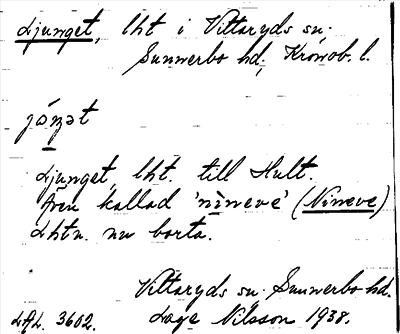 Ljunget, lht i Vittaryds sn.
Sunnerbo hd, Kronob. l.
jɷ́ŋət
Ljunget, lht. till Hult.
även kallad 'nìneve' (Nineve)
Lhtn. nu borta.
Vittaryds sn. Sunnerbo hd.
LAL. 3602. Lage Nilsson 1938.